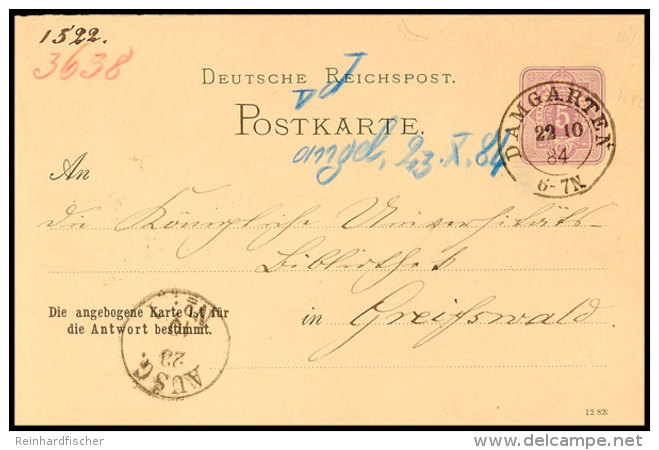 1522.
3638
DEUTSCHE REICHSPOST.
POSTKARTE.
angek. 23. X. 84
DAMGARTEN
22 10
84
6-7N.
5
An
die Königliche Universitäts-
Bibliothek
in Greifswald.
Die angebogene Karte ist für
die Antwort bestimmt.
AUSG.
23
12 82
Reinhardfischer
delcampe.net